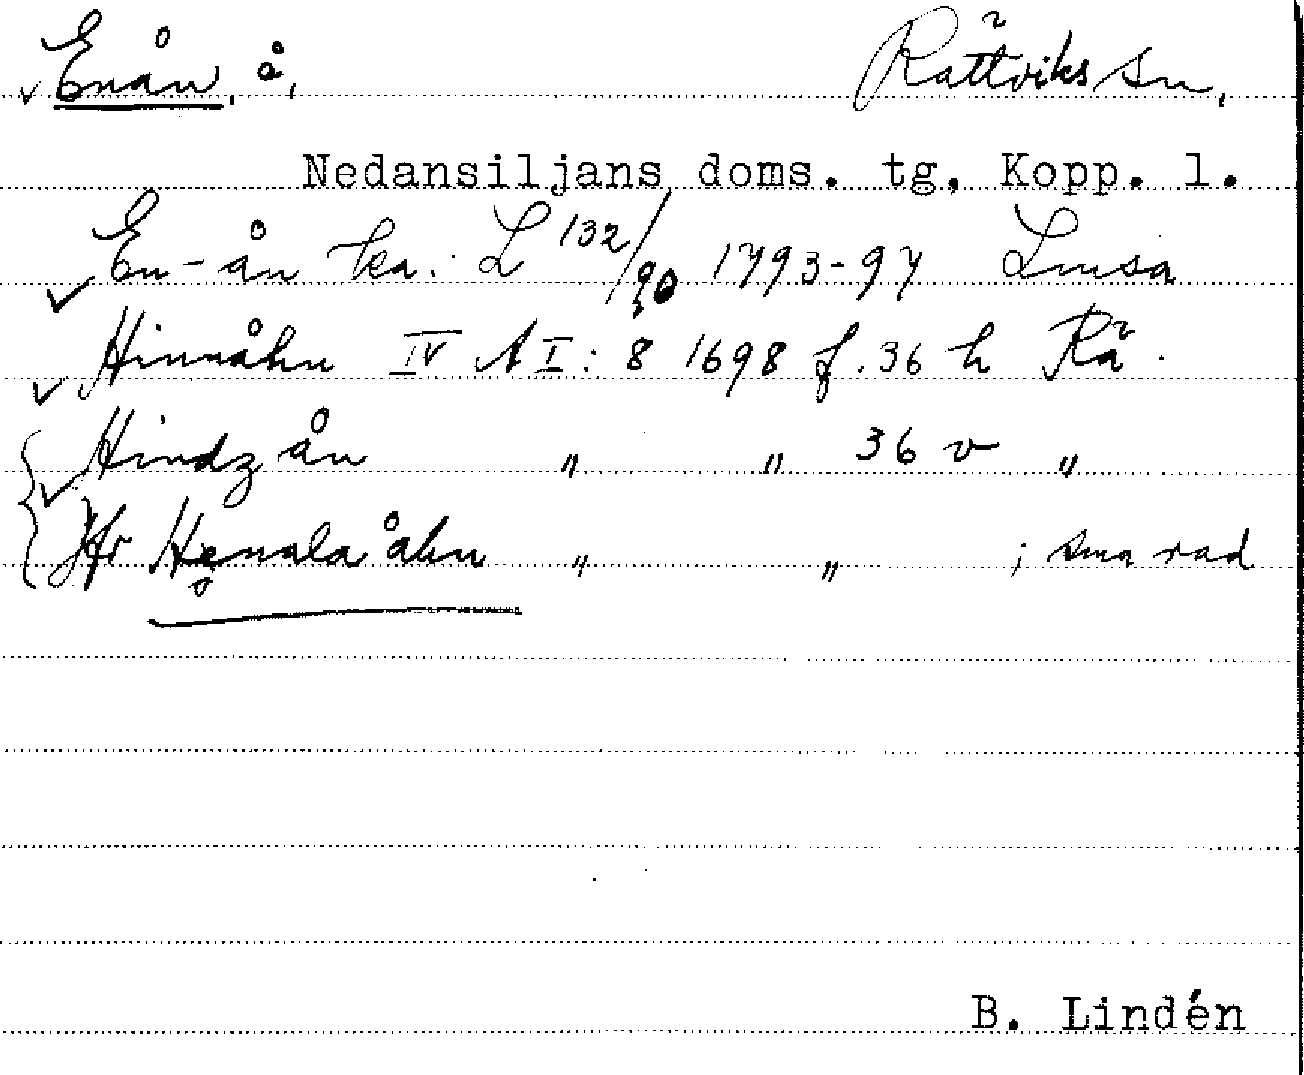 Enån, å, Rättviks sn,
Nedansiljans doms. tg, Kopp. l.
En-ån ka. L 132/90 1793-97 Limsa
Hinnåhn IV A I: 8 1698 f. 36 h Rä.
Hindz ån " " 36 v "
Jfr Hemala åhn " " ; sma rad
B. Lindén